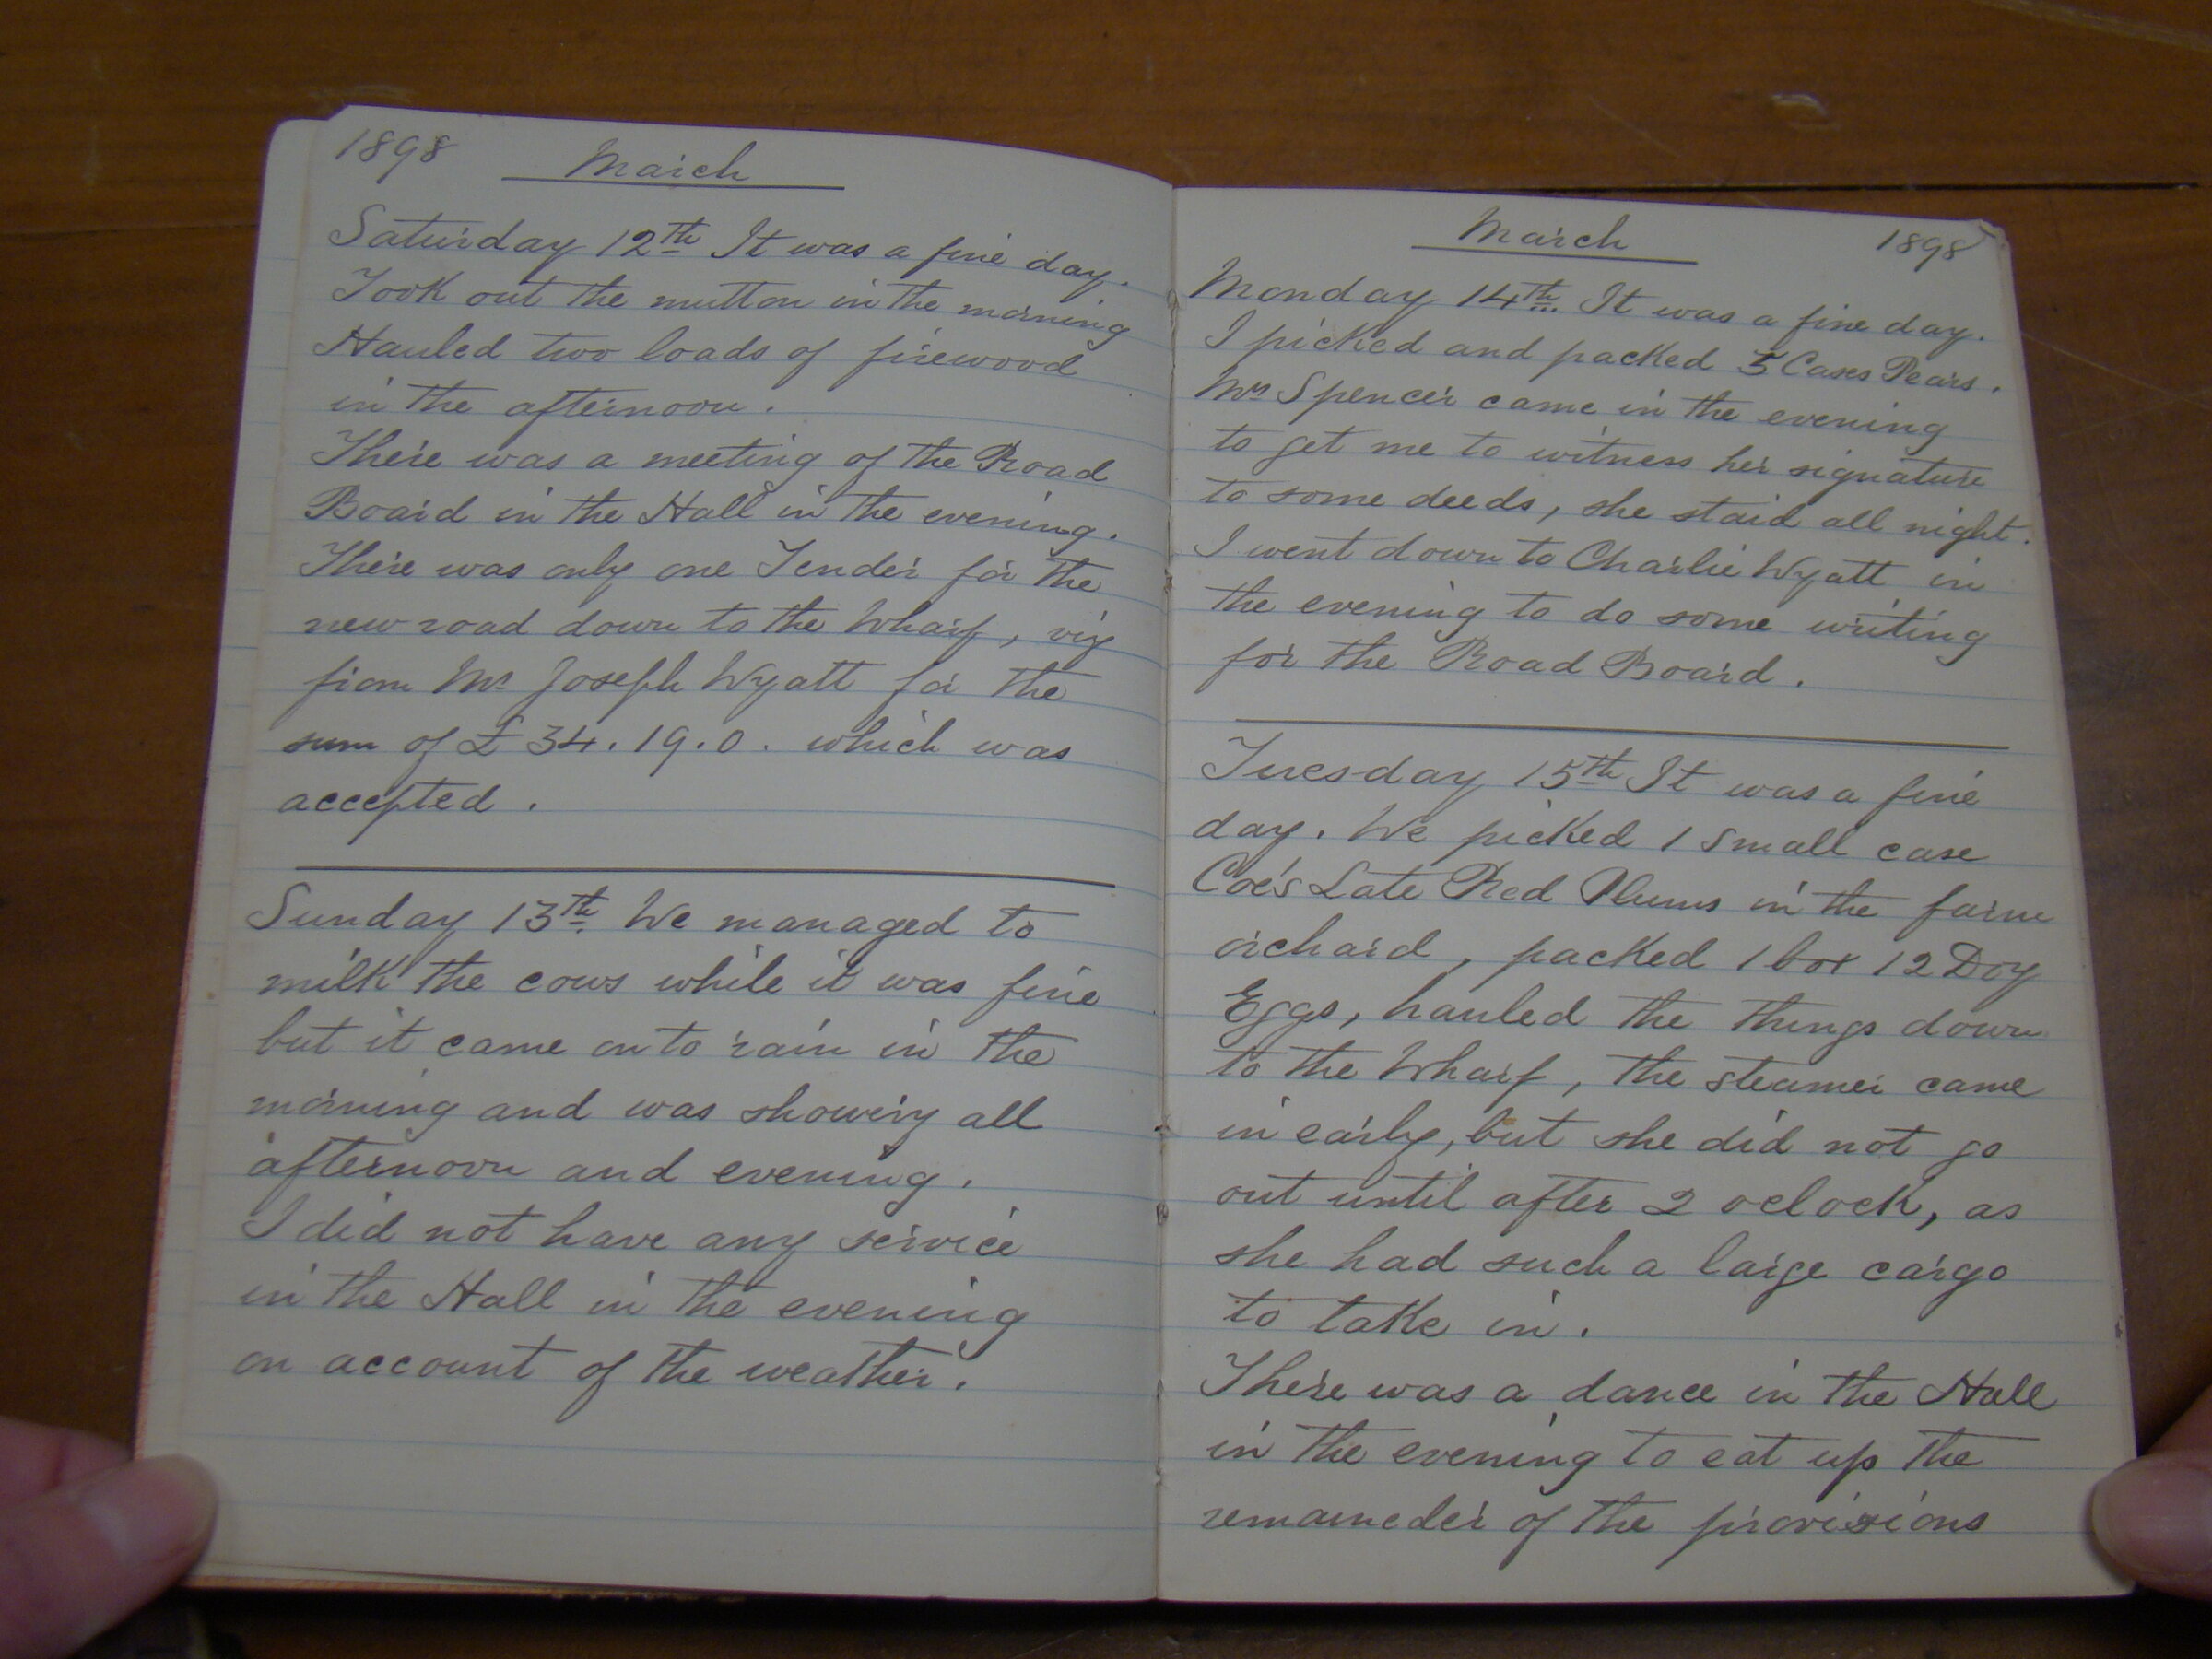 1898 March
Saturday 12th It was a fine day.
Took out the mutton in the morning
Hauled two loads of firewood
in the afternoon.
There was a meeting of the Road
Board in the Hall in the evening.
There was only one Tender for the
new road down to the Wharf, viz
from Mr Joseph Wyatt for the
sum of £34.19.0. which was
accepted.
Sunday 13th. We managed to
milk the cows while it was fine
but it came on to rain in the
morning and was showery all
afternoon and evening.
I did not have any service
in the Hall in the evening
on account of the weather.
March 1898
Monday 14th It was a fine day.
I picked and packed 5 Cases Pears.
Mrs Spencer came in the evening
to get me to witness her signature
to some deeds, she staid all night.
I went down to Charlie Wyatt in
the evening to do some writing
for the Road Board.
Tuesday 15th It was a fine
day. We picked 1 small case
Coe's Late Red Plums in the farm
orchard, packed 1 box 12 Doz
Eggs, hauled the things down
to the Wharf, the steamer came
in early, but she did not go
out until after 2 oclock, as
she had such a large cargo
to take in.
There was a dance in the Hall
in the evening to eat up the
remaineder of the provisions